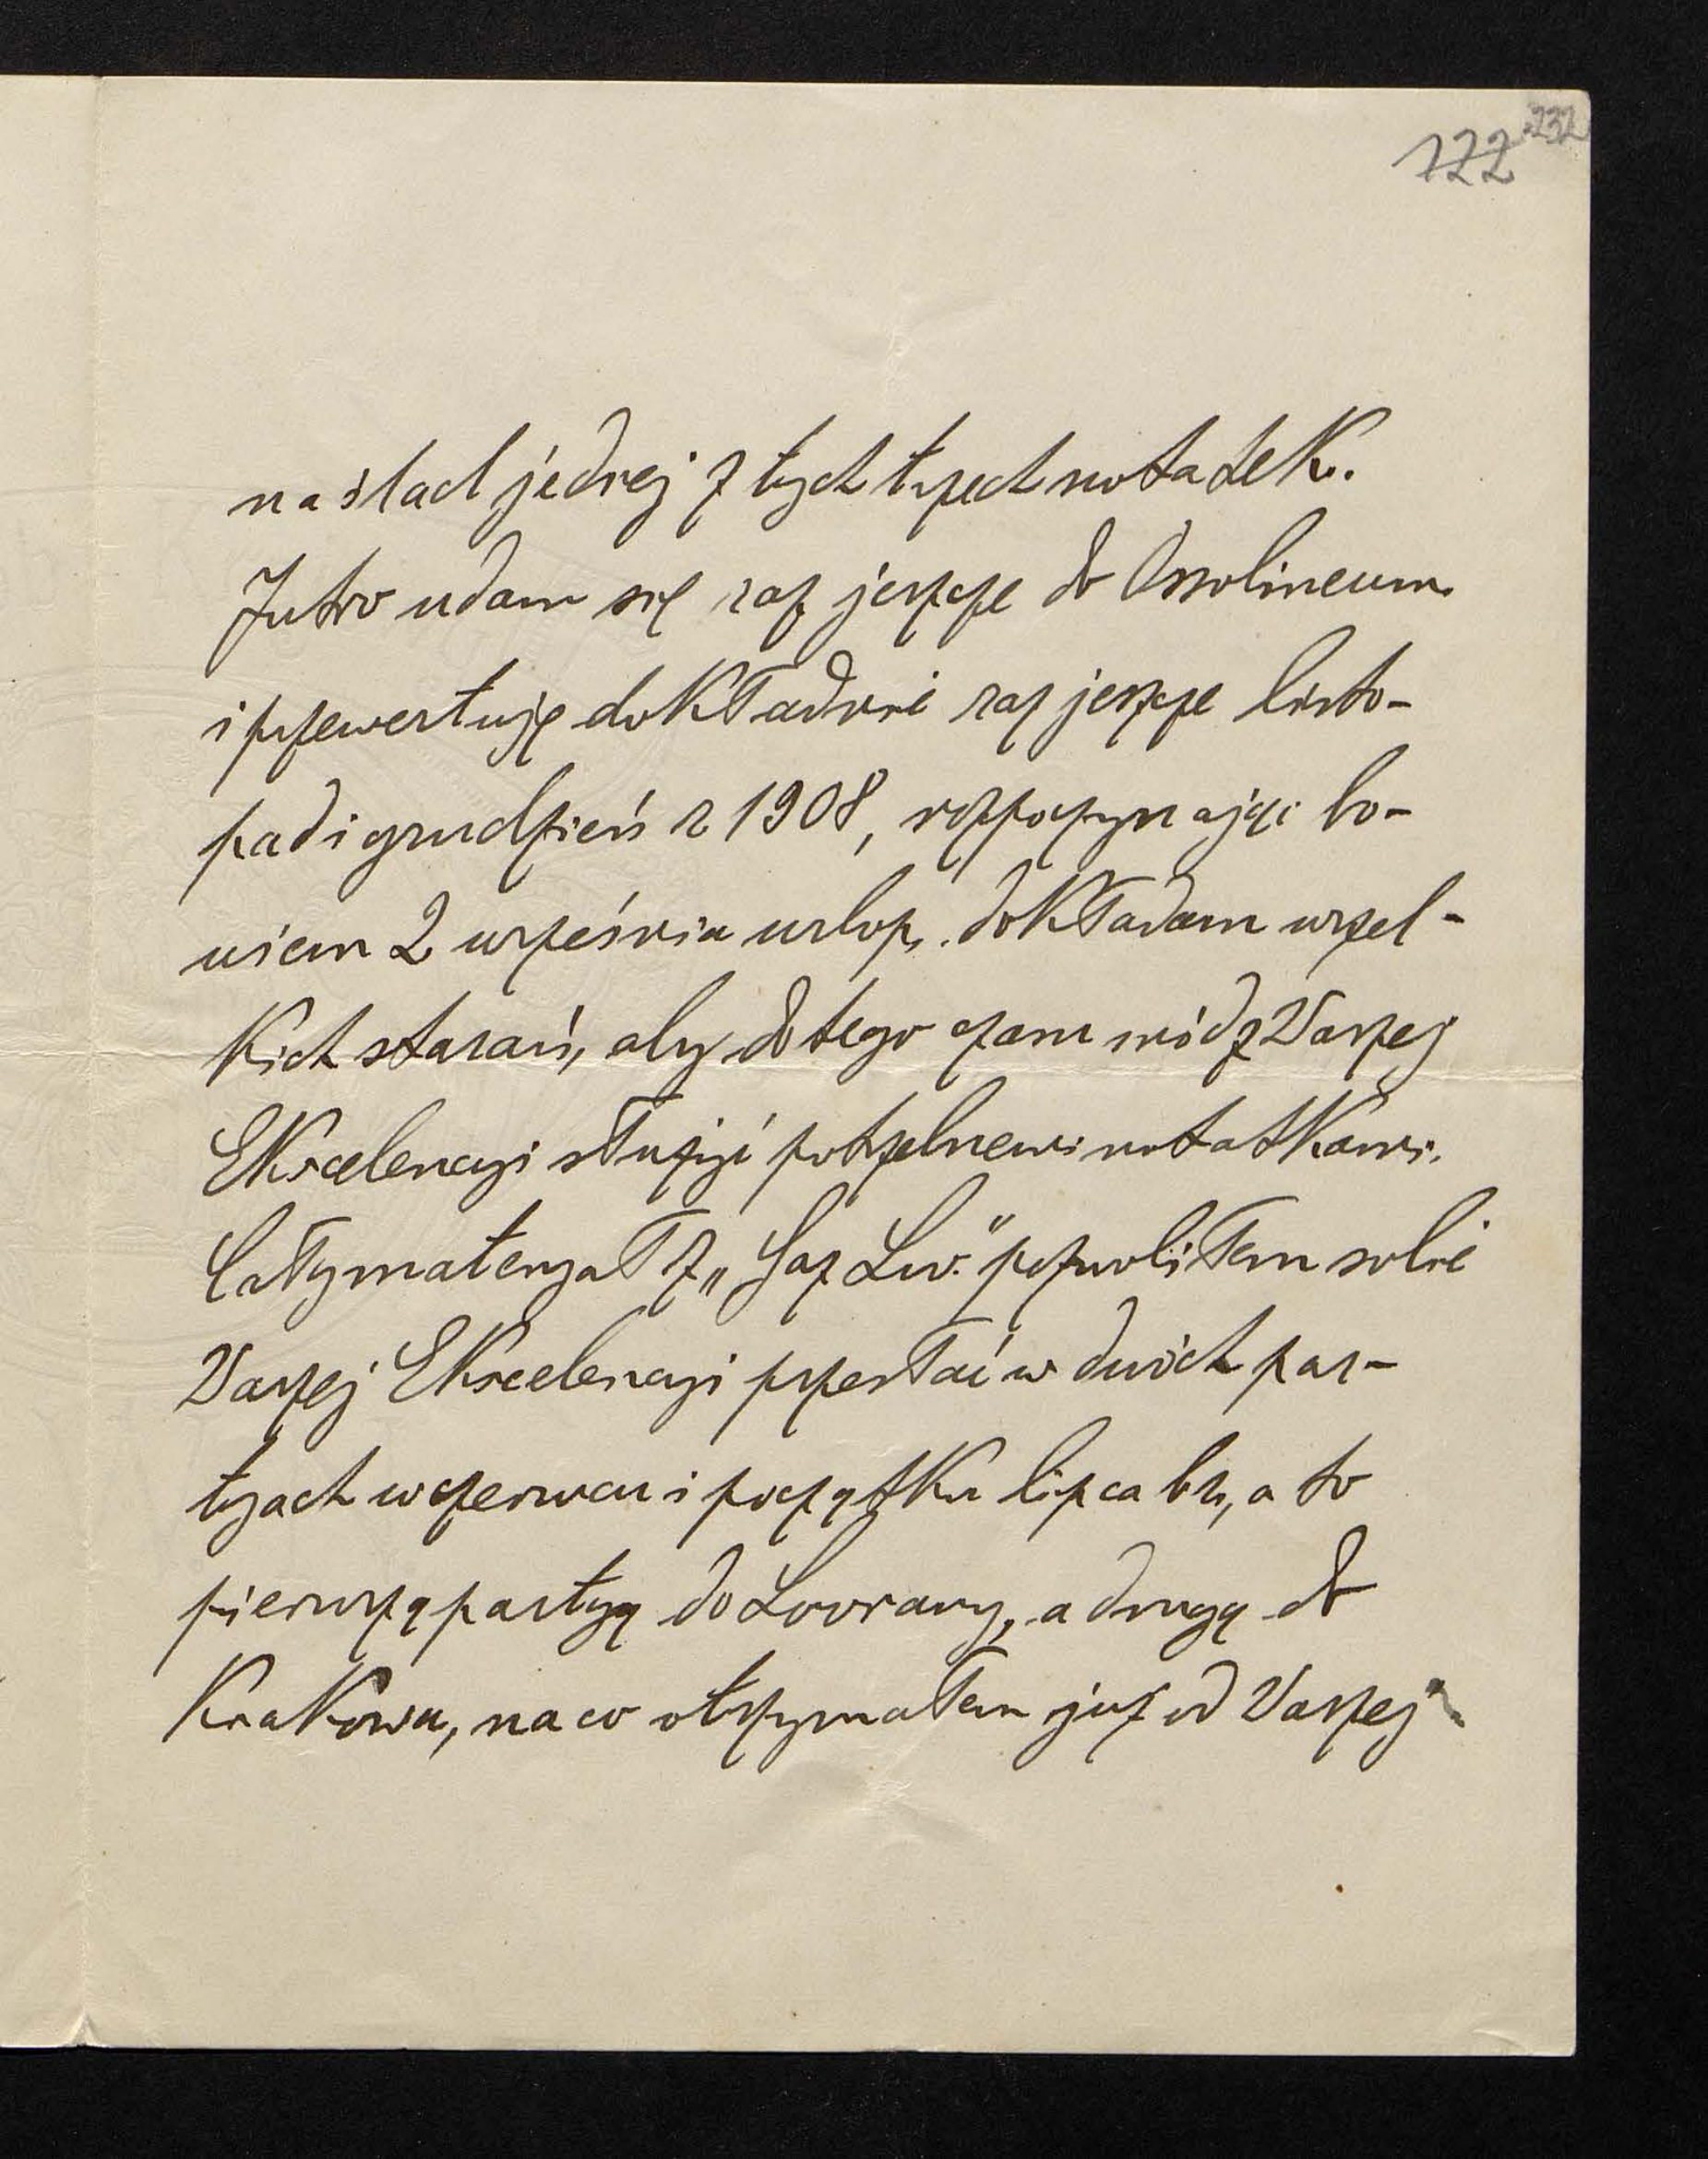 122 232
na ślad jednej z tych trzech notatek.
Jutro udam się raz jeszcze do Ossolineum
i przewertuję dokładnie raz jeszcze listo-
pad i grudzień r 1908, rozpoczynając bo-
wiem 2 września urlop, dokładam wszel-
kich starań, aby do tego czasu módz Waszej
Ekscelencyi służyć potrzebnemi notatkami.
Cały materyał z „Gaz Lw." pozwoliłem sobie
Waszej Ekscelencyi przesłać w dwóch par-
tyach w czerwcu i początku lipca br, a to
pierwszą partyę do Lovrany, a drugą do
Krakowa, na co otrzymałem już od Waszej